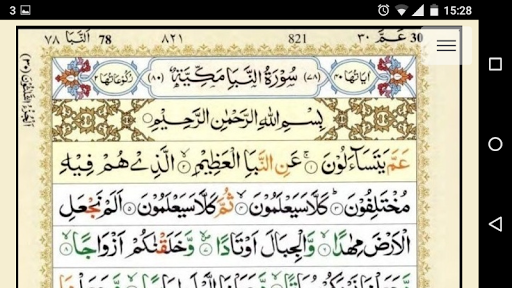 3 15:28
٧٨ اَلنَّبَاُ 78 ٨٢١ 821 ٣٠ عَمَّ 30
اٰیَاتُهَا ٤٠ (٧٨) سُوْرَةُ النَّبَاِ مَكِّیَّةٌ (٨٠) رُكُوْعَاتُهَا ٢
بِسْمِ اللّٰهِ الرَّحْمٰنِ الرَّحِیْمِ
عَمَّ یَتَسَآءَلُوْنَ ۝١ عَنِ النَّبَاِ الْعَظِیْمِ ۝٢ الَّذِیْ هُمْ فِیْهِ
مُخْتَلِفُوْنَ ۝٣ كَلَّا سَیَعْلَمُوْنَ ۝٤ ثُمَّ كَلَّا سَیَعْلَمُوْنَ ۝٥ اَلَمْ نَجْعَلِ
الْاَرْضَ مِهٰدًا ۝٦ وَّالْجِبَالَ اَوْتَادًا ۝٧ وَّخَلَقْنٰكُمْ اَزْوَاجًا ۝٨